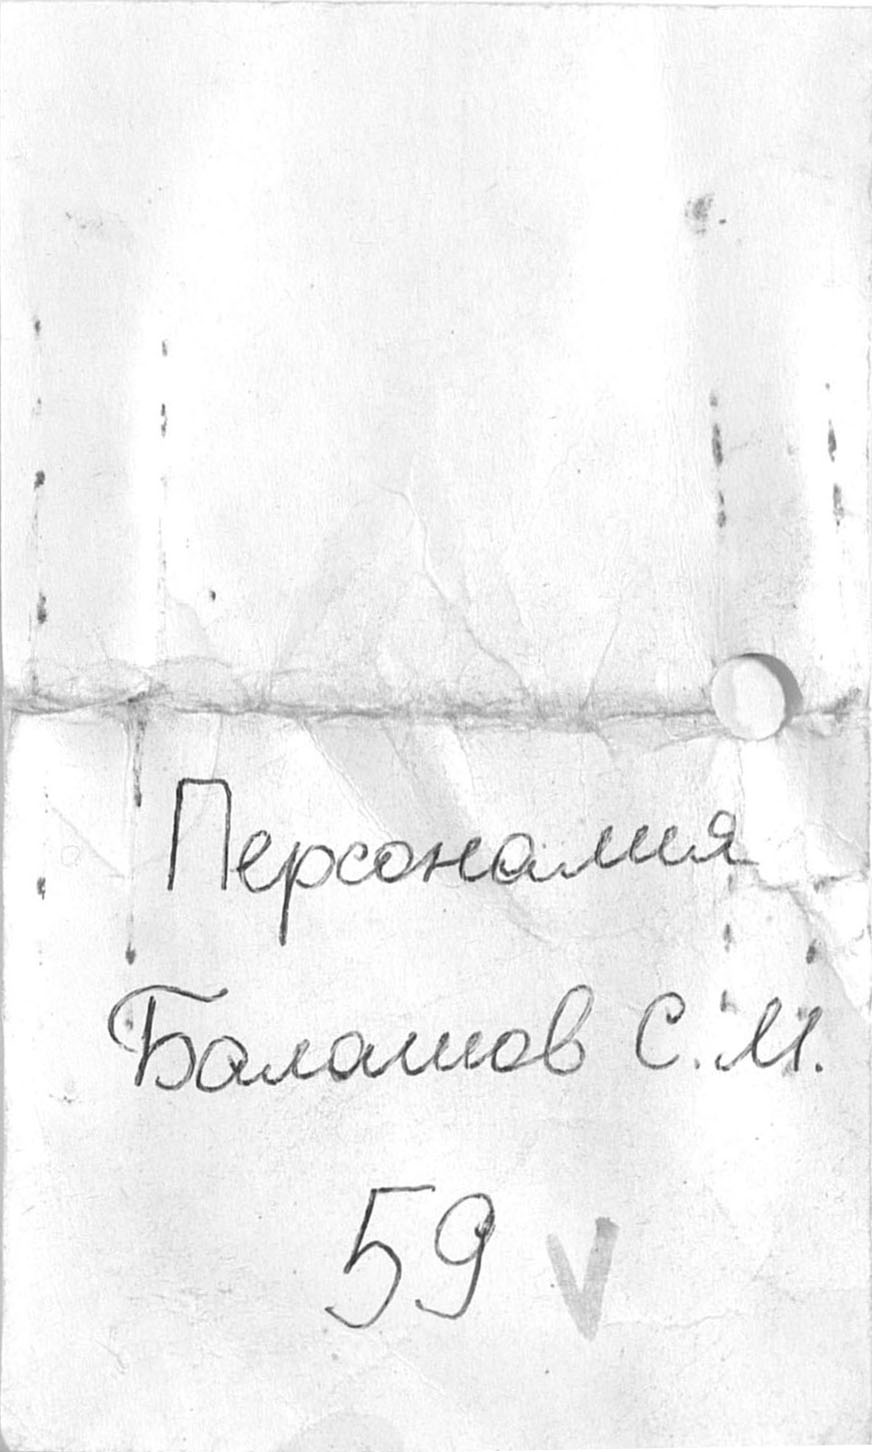 Персоналия
Балашов С.М.
59 V